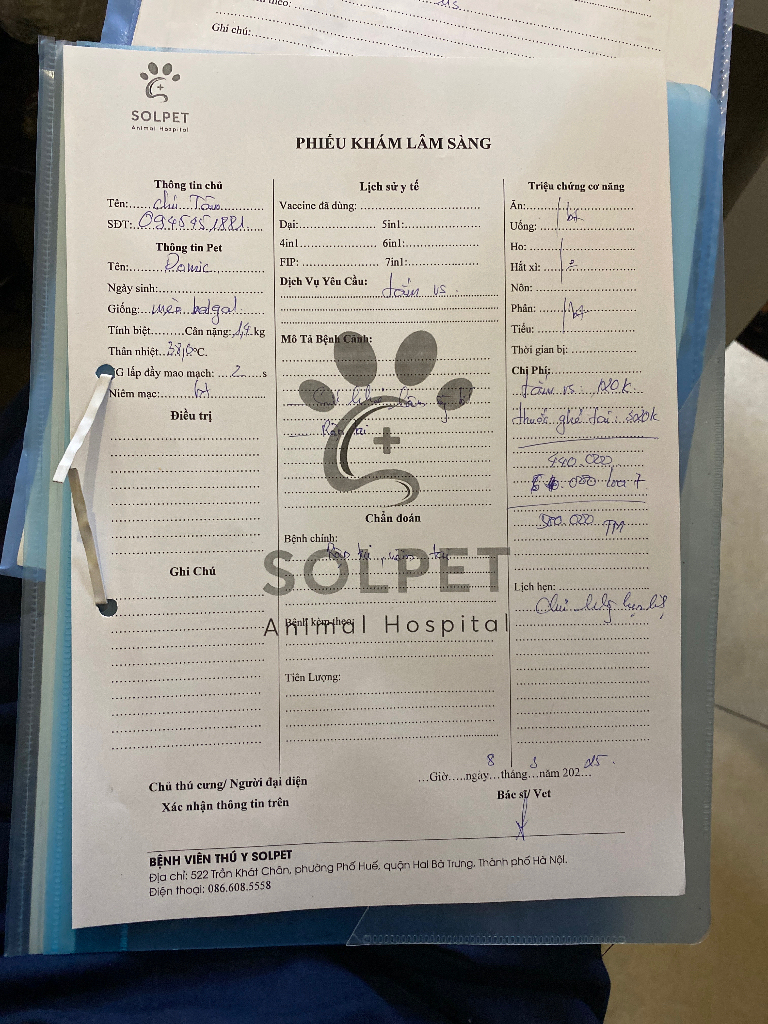 theo:
Ghi chú:
SOLPET
Animal Hospital
PHIẾU KHÁM LÂM SÀNG
Thông tin chủ
Tên: chú Tâm
SĐT: 0945451881
Thông tin Pet
Tên: Domic
Ngày sinh:
Giống: mèo
Tính biệt Cân nặng: 1,4 kg
Thân nhiệt 38, °C.
G lấp đầy mao mạch: 2 s
Niêm mạc: bt
Điều trị
Ghi Chú
Lịch sử y tế
Vaccine đã dùng:
Dại: 5in1:
4in1 6in1:
FIP: 7in1:
Dịch Vụ Yêu Cầu: tắm vs
Mô Tả Bệnh Cảnh:
Rận tai
Chẩn đoán
Bệnh chính: Rận tai
SOLPET
Animal Hospital
Bệnh kèm theo:
Tiên Lượng:
Triệu chứng cơ năng
Ăn:
Uống: bt
Ho:
Hắt xì:
Nôn:
Phân: bt
Tiểu:
Thời gian bị:
Chị Phí:
tắm vs:
thuốc ghẻ tai
440.000
500.000 TM
Lịch hẹn:
Chủ
Giờ ngày 8 tháng 3 năm 202 25
Chủ thú cưng/ Người đại diện
Xác nhận thông tin trên
Bác sĩ/ Vet
BỆNH VIÊN THÚ Y SOLPET
Địa chỉ: 522 Trần Khát Chân, phường Phố Huế, quận Hai Bà Trưng, Thành phố Hà Nội.
Điện thoại: 086.608.5558